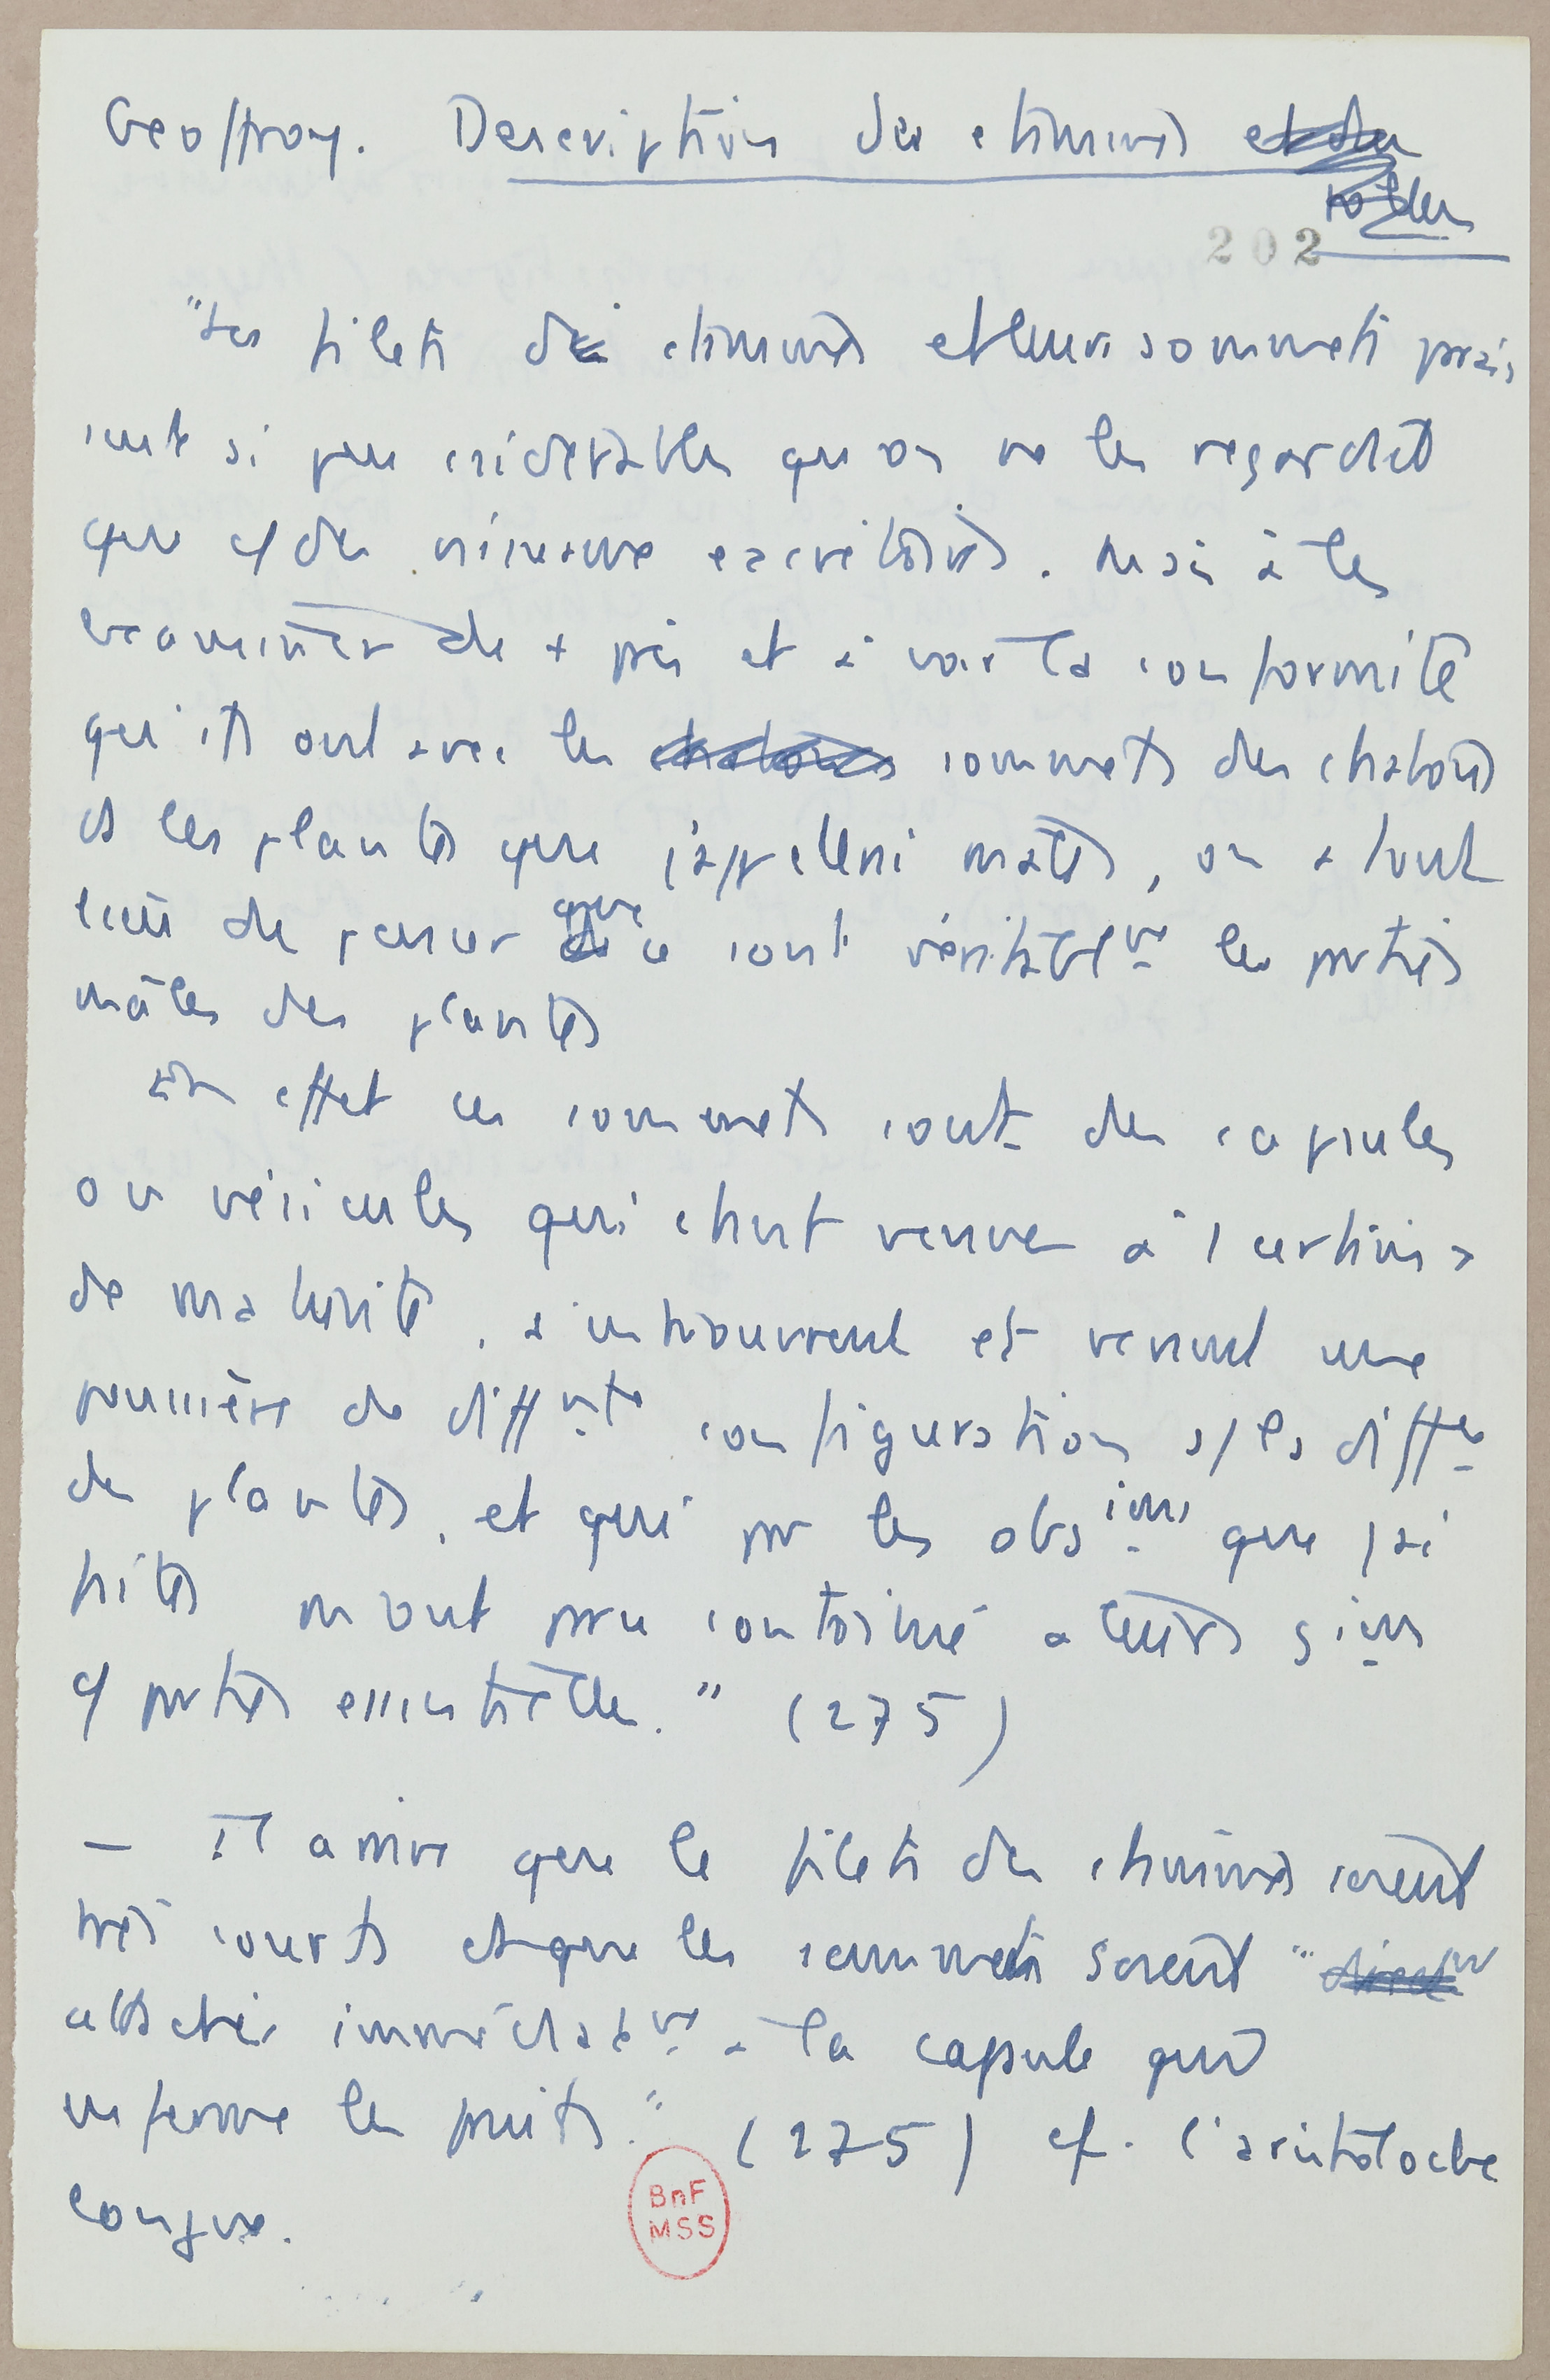 Geoffroy. Description des étamines et des
rôles
202
"Les filets des étamines et leurs sommets parais
sent si peu considérables qu'on ne les regardait
que c/ des excrétoires. Mais à les
examiner de + près et à voir la conformité
qu'ils ont avec les chatons sommets des chatons
et les plantes que j'appellerai mâles, on a tout
lieu de penser que ce sont véritablnt les parties
mâles des plantes
En effet ces sommets sont des capsules
ou vésicules qui étant venues à 1 certain >
de maturité, s'entrouvrent et versent une
poussière de diffntes configuration s/ les diffces
des plantes, et qui par les obsions que j'ai
faites m'ont paru à leurs
c/ parties essentielles." (275)
— Il arrive que le filets des étamines soient
très courts et que les sommets soient "
attachés immédiatnt à la capsule qui
enferme les fruits." (275) cf. l'aristoloche
longue.
BnF
MSS